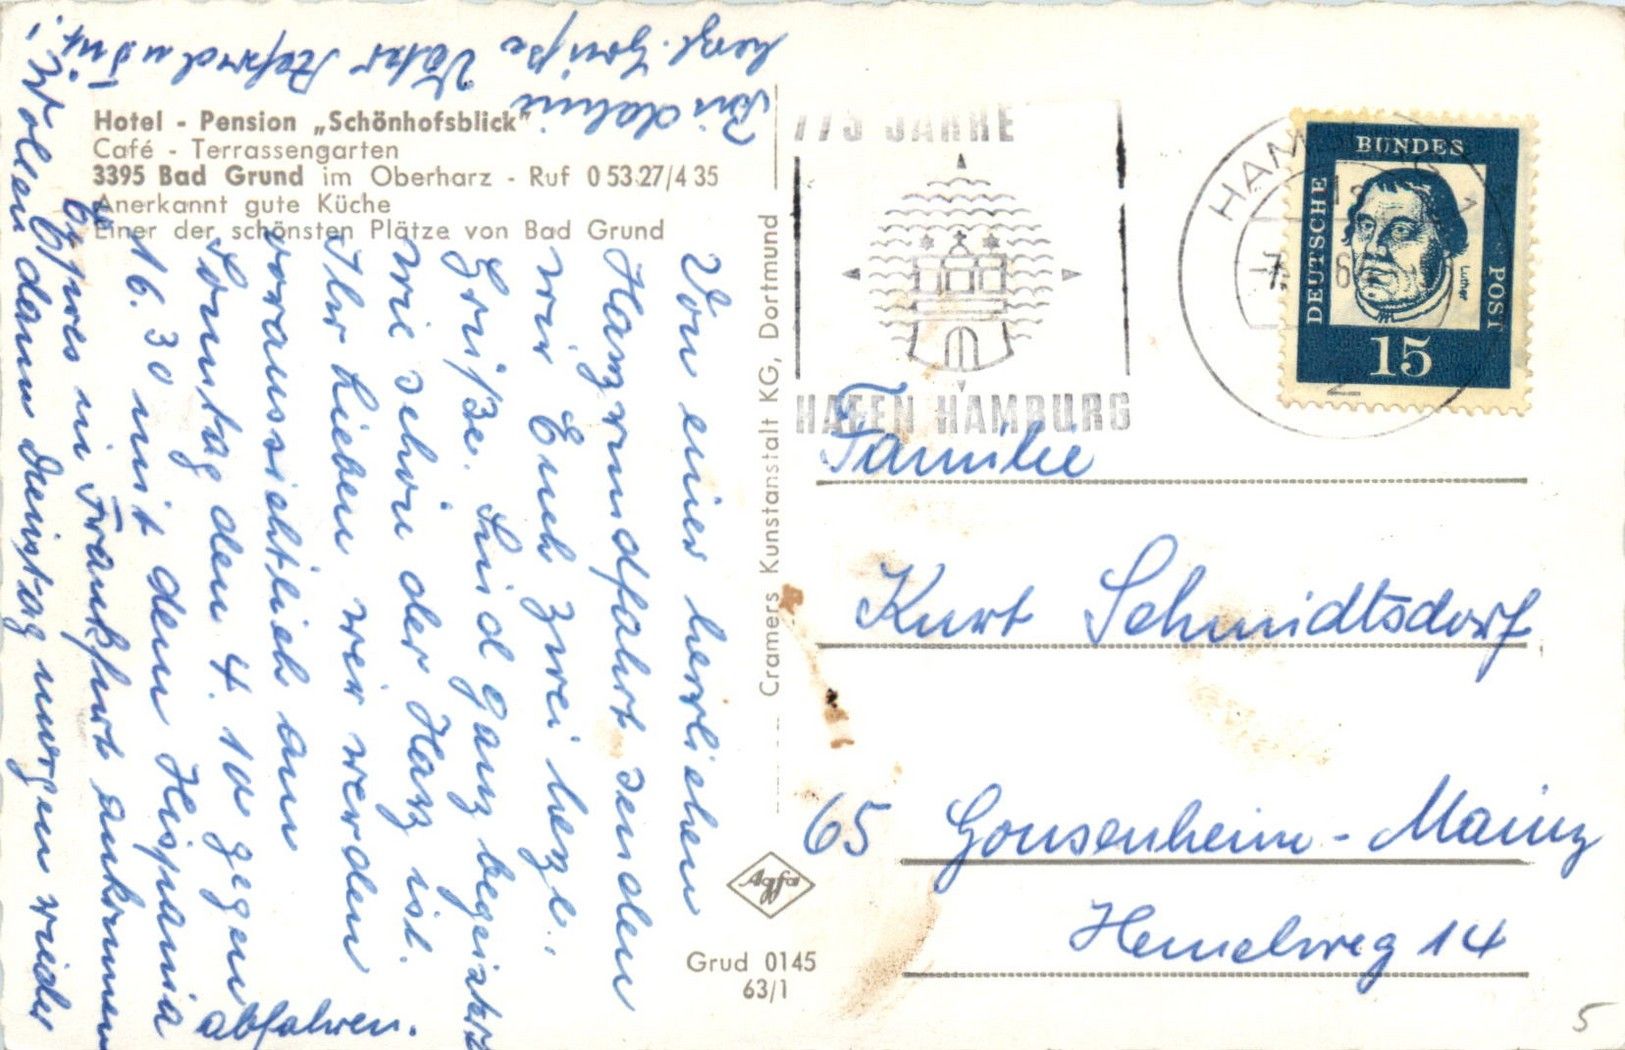 Hotel - Pension „Schönhofsblick"
Café - Terrassengarten
3395 Bad Grund im Oberharz - Ruf 0 53 27/4 35
Anerkannt gute Küche
Einer der schönsten Plätze von Bad Grund
Von einer herrlichen
Harzrundfahrt senden
wir Euch zwei herzl.
Grüße. Sind ganz begeistert
wie schön der Harz ist.
Ihr Lieben wir werden
voraussichtlich am
Sonntag den 4. 10 gegen
16.30 mit dem Hispania
Expres in Frankfurt ankommen
Wollen dann Dienstag morgen wieder
abfahren.
herzl. Grüße Vater
Cramers Kunstanstalt KG, Dortmund
Agfa
Grud 0145
63/1
775 JAHRE
HAFEN HAMBURG
HAM
DEUTSCHE
BUNDES
POST
Luther
15
Familie
Kurt Schmidtsdorf
65 Gonsenheim - Mainz
Hemelweg 14
5